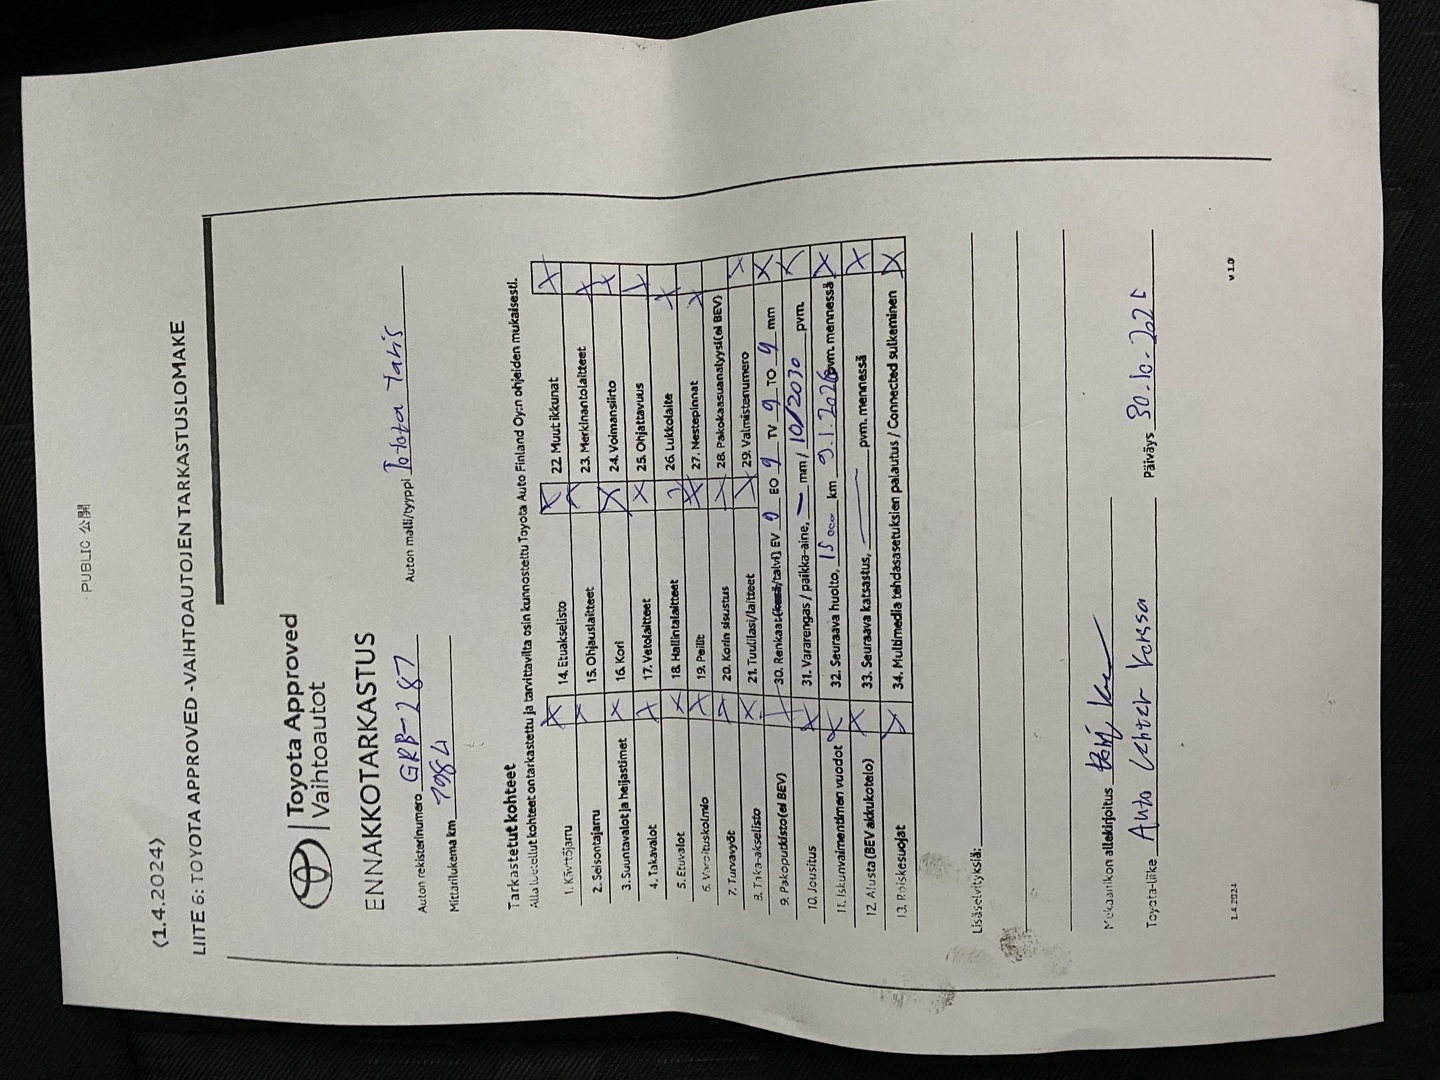 PUBLIC 公開
(1.4.2024)
LIITE 6: TOYOTA APPROVED -VAIHTOAUTOJEN TARKASTUSLOMAKE
Toyota Approved
Vaihtoautot
ENNAKKOTARKASTUS
Auton rekisterinumero GRB-287 Auton malli/tyyppi Totota Yaris
Mittarilukema km 7984
Tarkastetut kohteet
Alla luetellut kohteet on tarkastettu ja tarvittavilta osin kunnostettu Toyota Auto Finland Oy:n ohjeiden mukaisesti.
1. Käyttöjarru X
2. Seisontajarru X
3. Suuntavalot ja heijastimet X
4. Takavalot X
5. Etuvalot X
6. Varoituskolmio X
7. Turvavyöt X
8. Taka-akselisto X
9. Pakoputkisto (ei BEV) X
10. Jousitus X
11. Iskunvaimentimen vuodot X
12. Alusta (BEV akkukotelo) X
13. Roiskesuojat X
14. Etuakselisto X
15. Ohjauslaitteet X
16. Kori X
17. Vetolaitteet X
18. Hallintalaitteet X
19. Peilit X
20. Korin sisustus X
21. Tuulilasi/laitteet X
22. Muut ikkunat X
23. Merkinantolaitteet X
24. Voimansiirto X
25. Ohjattavuus X
26. Lukkolaite X
27. Nestepinnat X
28. Pakokaasuanalyysi (ei BEV)
29. Valmistenumero X
30. Renkaat (kesä/talvi) EV 9 EO 9 TV 9 TO 9 mm X
31. Vararengas / paikka-aine, — mm / 10/2030 pvm. X
32. Seuraava huolto, 15000 km 9.1.2026 pvm. mennessä X
33. Seuraava katsastus, — pvm. mennessä X
34. Multimedia tehdasasetuksien palautus / Connected sulkeminen X
Lisäselvityksiä:
Mekaanikon allekirjoitus
Toyota-liike Auto Lehter Forssa Päiväys 30.10.2025
1.4.2024 v 1.0